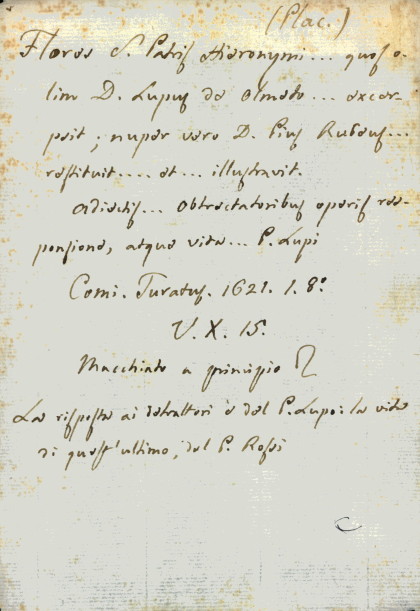 (Plac.)
Flores S. Patris Hieronymi... quos o-
lim D. Lupus de Olmeto... excer-
psit; nuper vero D. Pius Rubeus...
restituit.... et... illustravit.
Adiectis... obtrectatoribus operis res-
ponsione, atque vita... P. Lupi
Comi. Turatus. 1621. 1. 8.º
V. X. 15.
Macchiato a principio
La risposta ai detrattori è del P. Lupo: la vita
di quest'ultimo, del P. Rossi